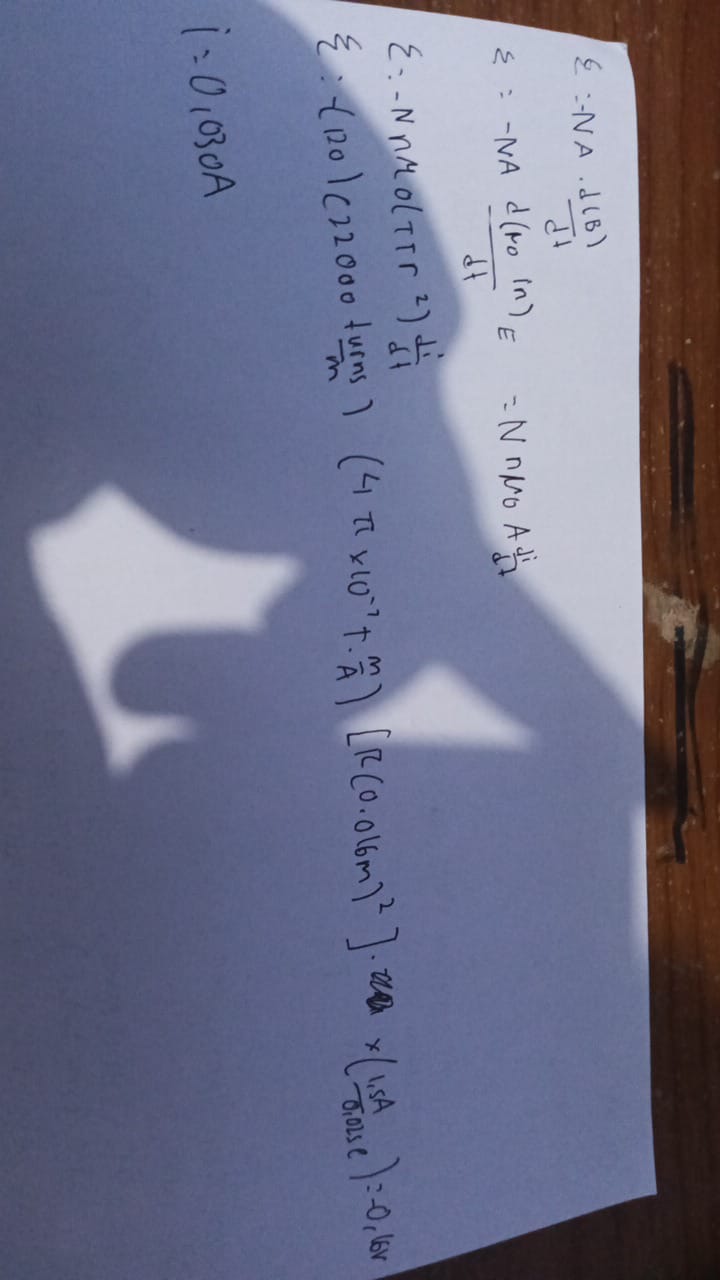 ε = -NA · d(B)/dt
ε = -NA d(μ0 in)/dt E = -N n μ0 A di/dt
ε = -N n μ0 (πr²) di/dt
ε = -(120) (22000 turns/m) (4π x10⁻⁷ T·m/A) [π(0.016m)²] · x (1,5A/0,025e) = -0,16V
i = 0,030A